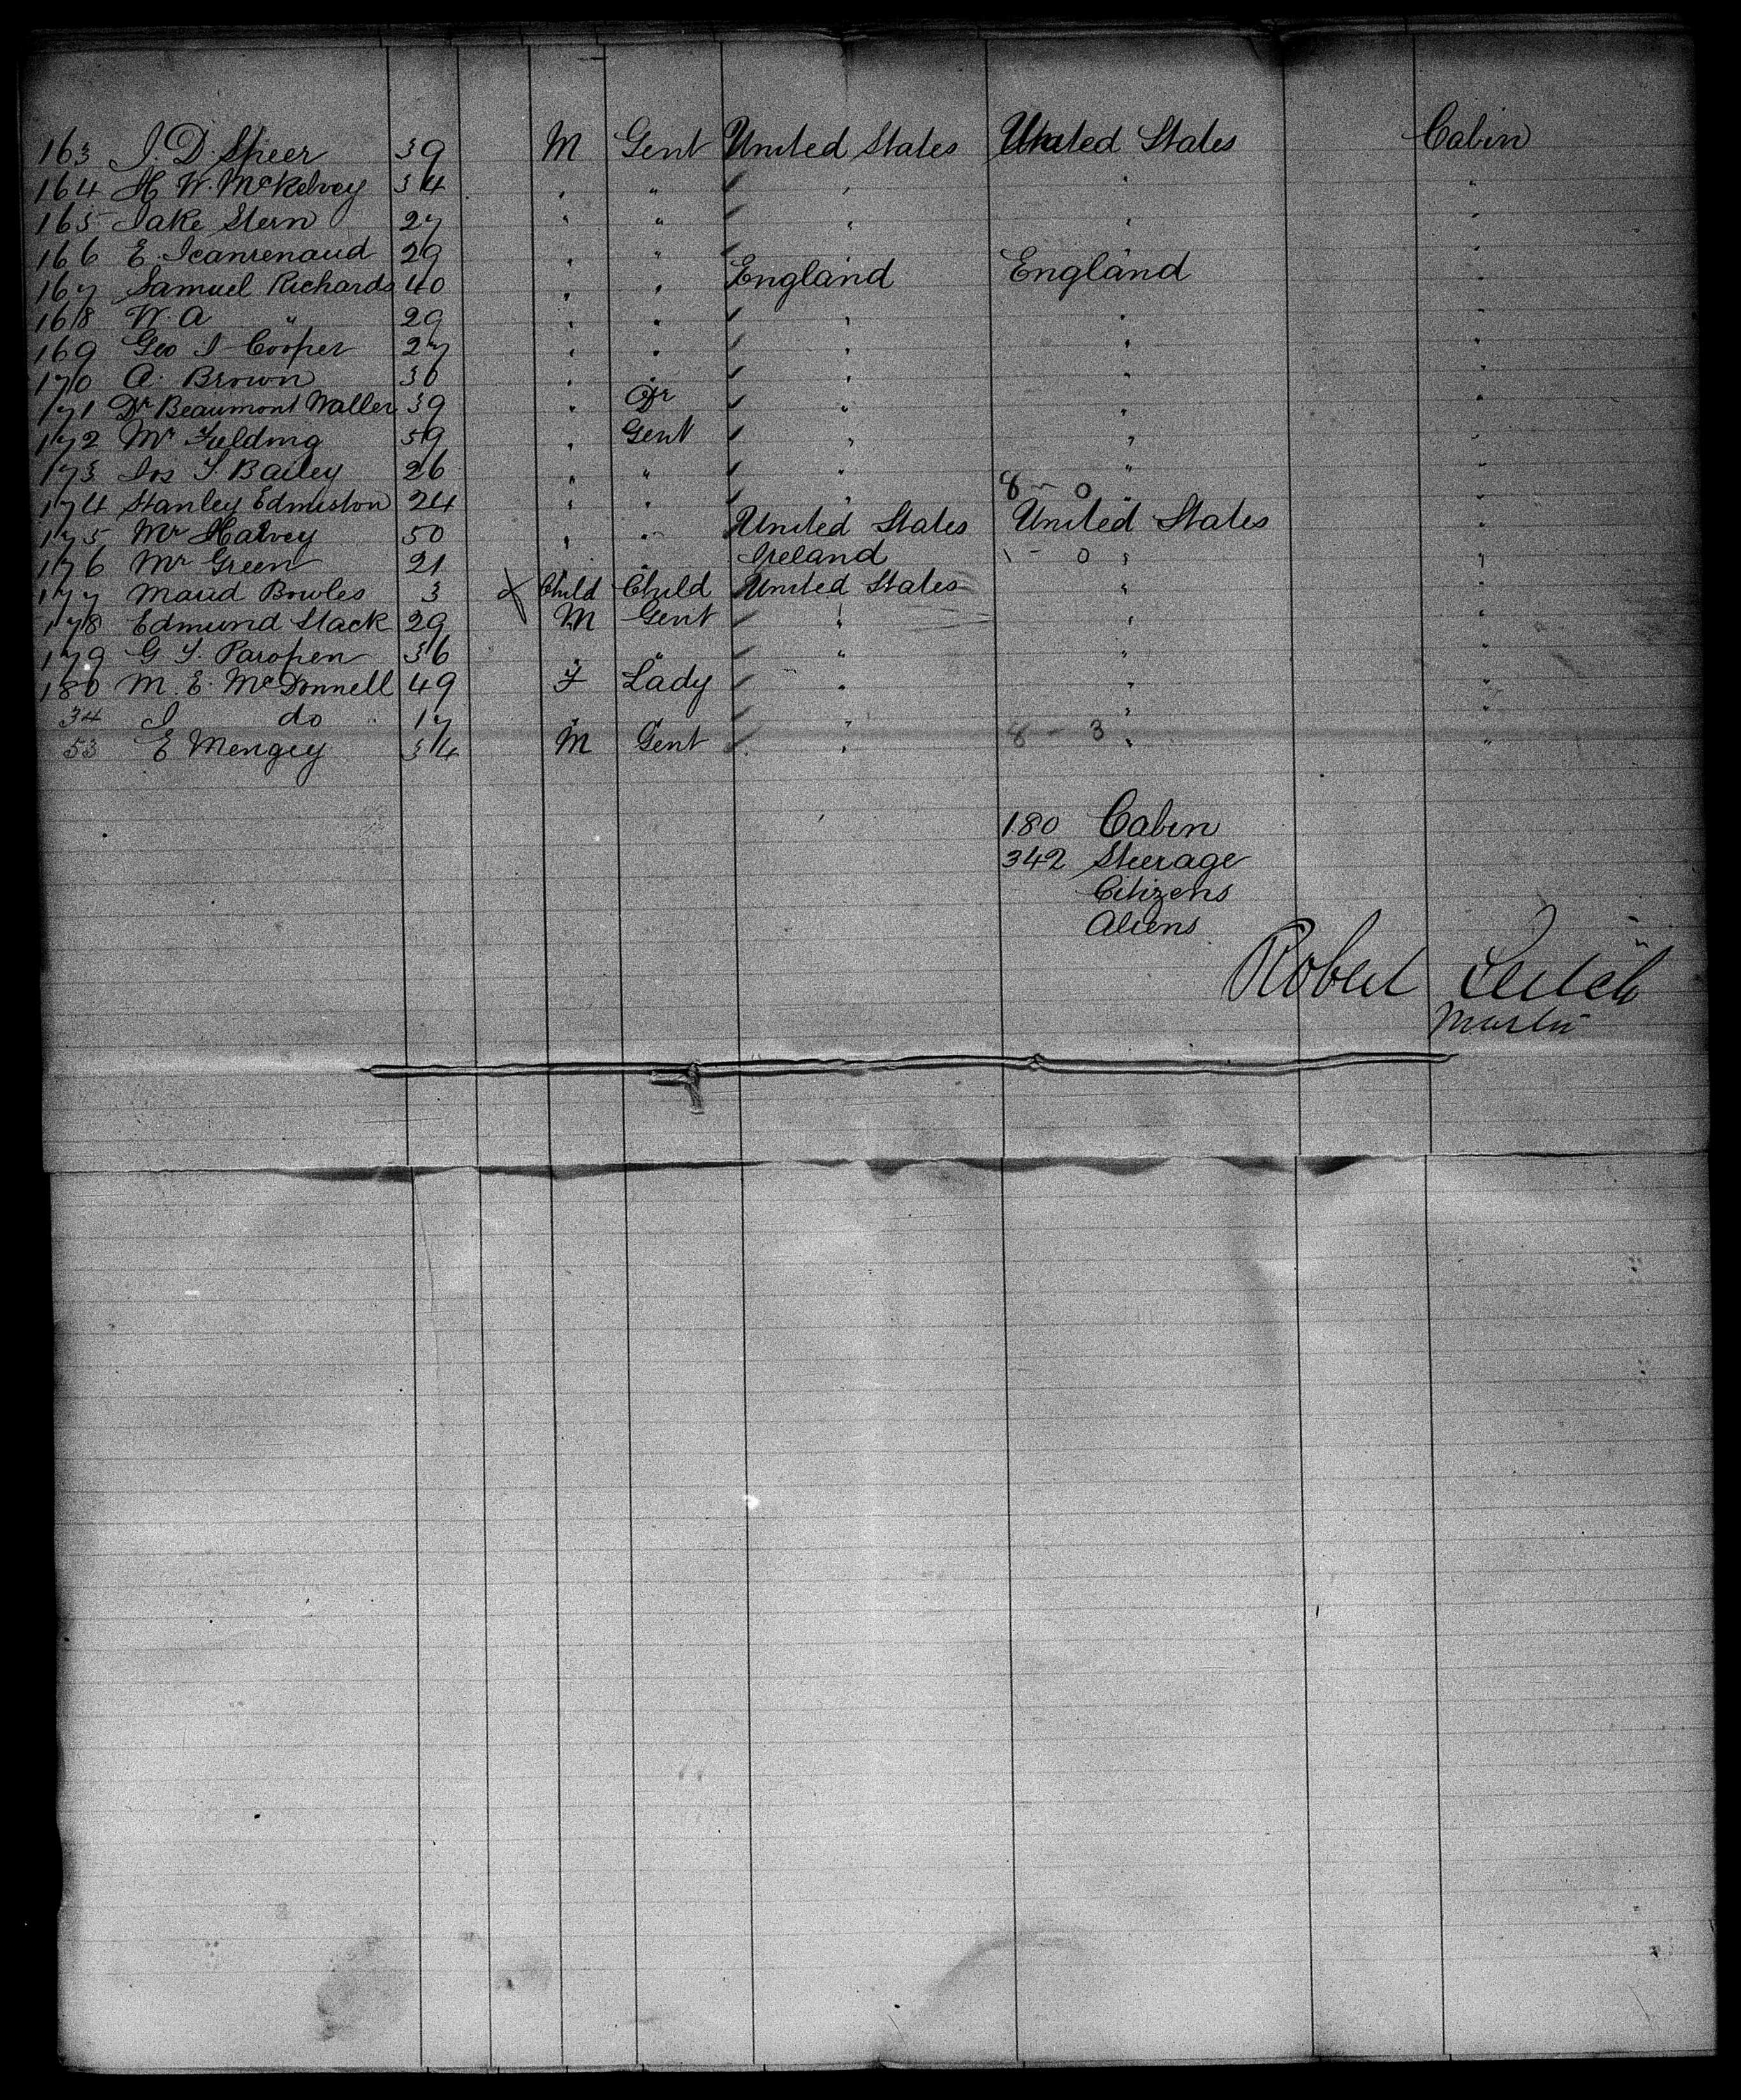 163 J. D. Speer 39 M Gent United States United States Cabin
164 H W. McKelvey 34 " " " " "
165 Jake Stern 27 " " " " "
166 E. Jeanrenaud 29 " " " " "
167 Samuel Richards 40 " " England England "
168 W. A " 29 " " " " "
169 Geo J Cooper 27 " " " " "
170 A. Brown 30 " " " " "
171 Dr Beaumont Waller 39 " Dr " " "
172 Mr Fielding 59 " Gent " " "
173 Jos T. Bailey 26 " " " " "
174 Stanley Edmiston 24 " " " 8 - 0 " "
175 Mr Harvey 50 " " United States United States "
176 Mr Green 21 " " Ireland 1 - 0 " "
177 Maud Bowles 3 X Child Child United States " "
178 Edmund Stack 29 M Gent " " "
179 G. T. 36 " " " " "
180 M. E. McDonnell 49 F Lady " " "
34 J do " 17 " " " " "
53 E Mengey 34 M Gent " 8 - 3 " "
180 Cabin
342 Steerage
Citizens
Aliens
Robert Leitch
Master